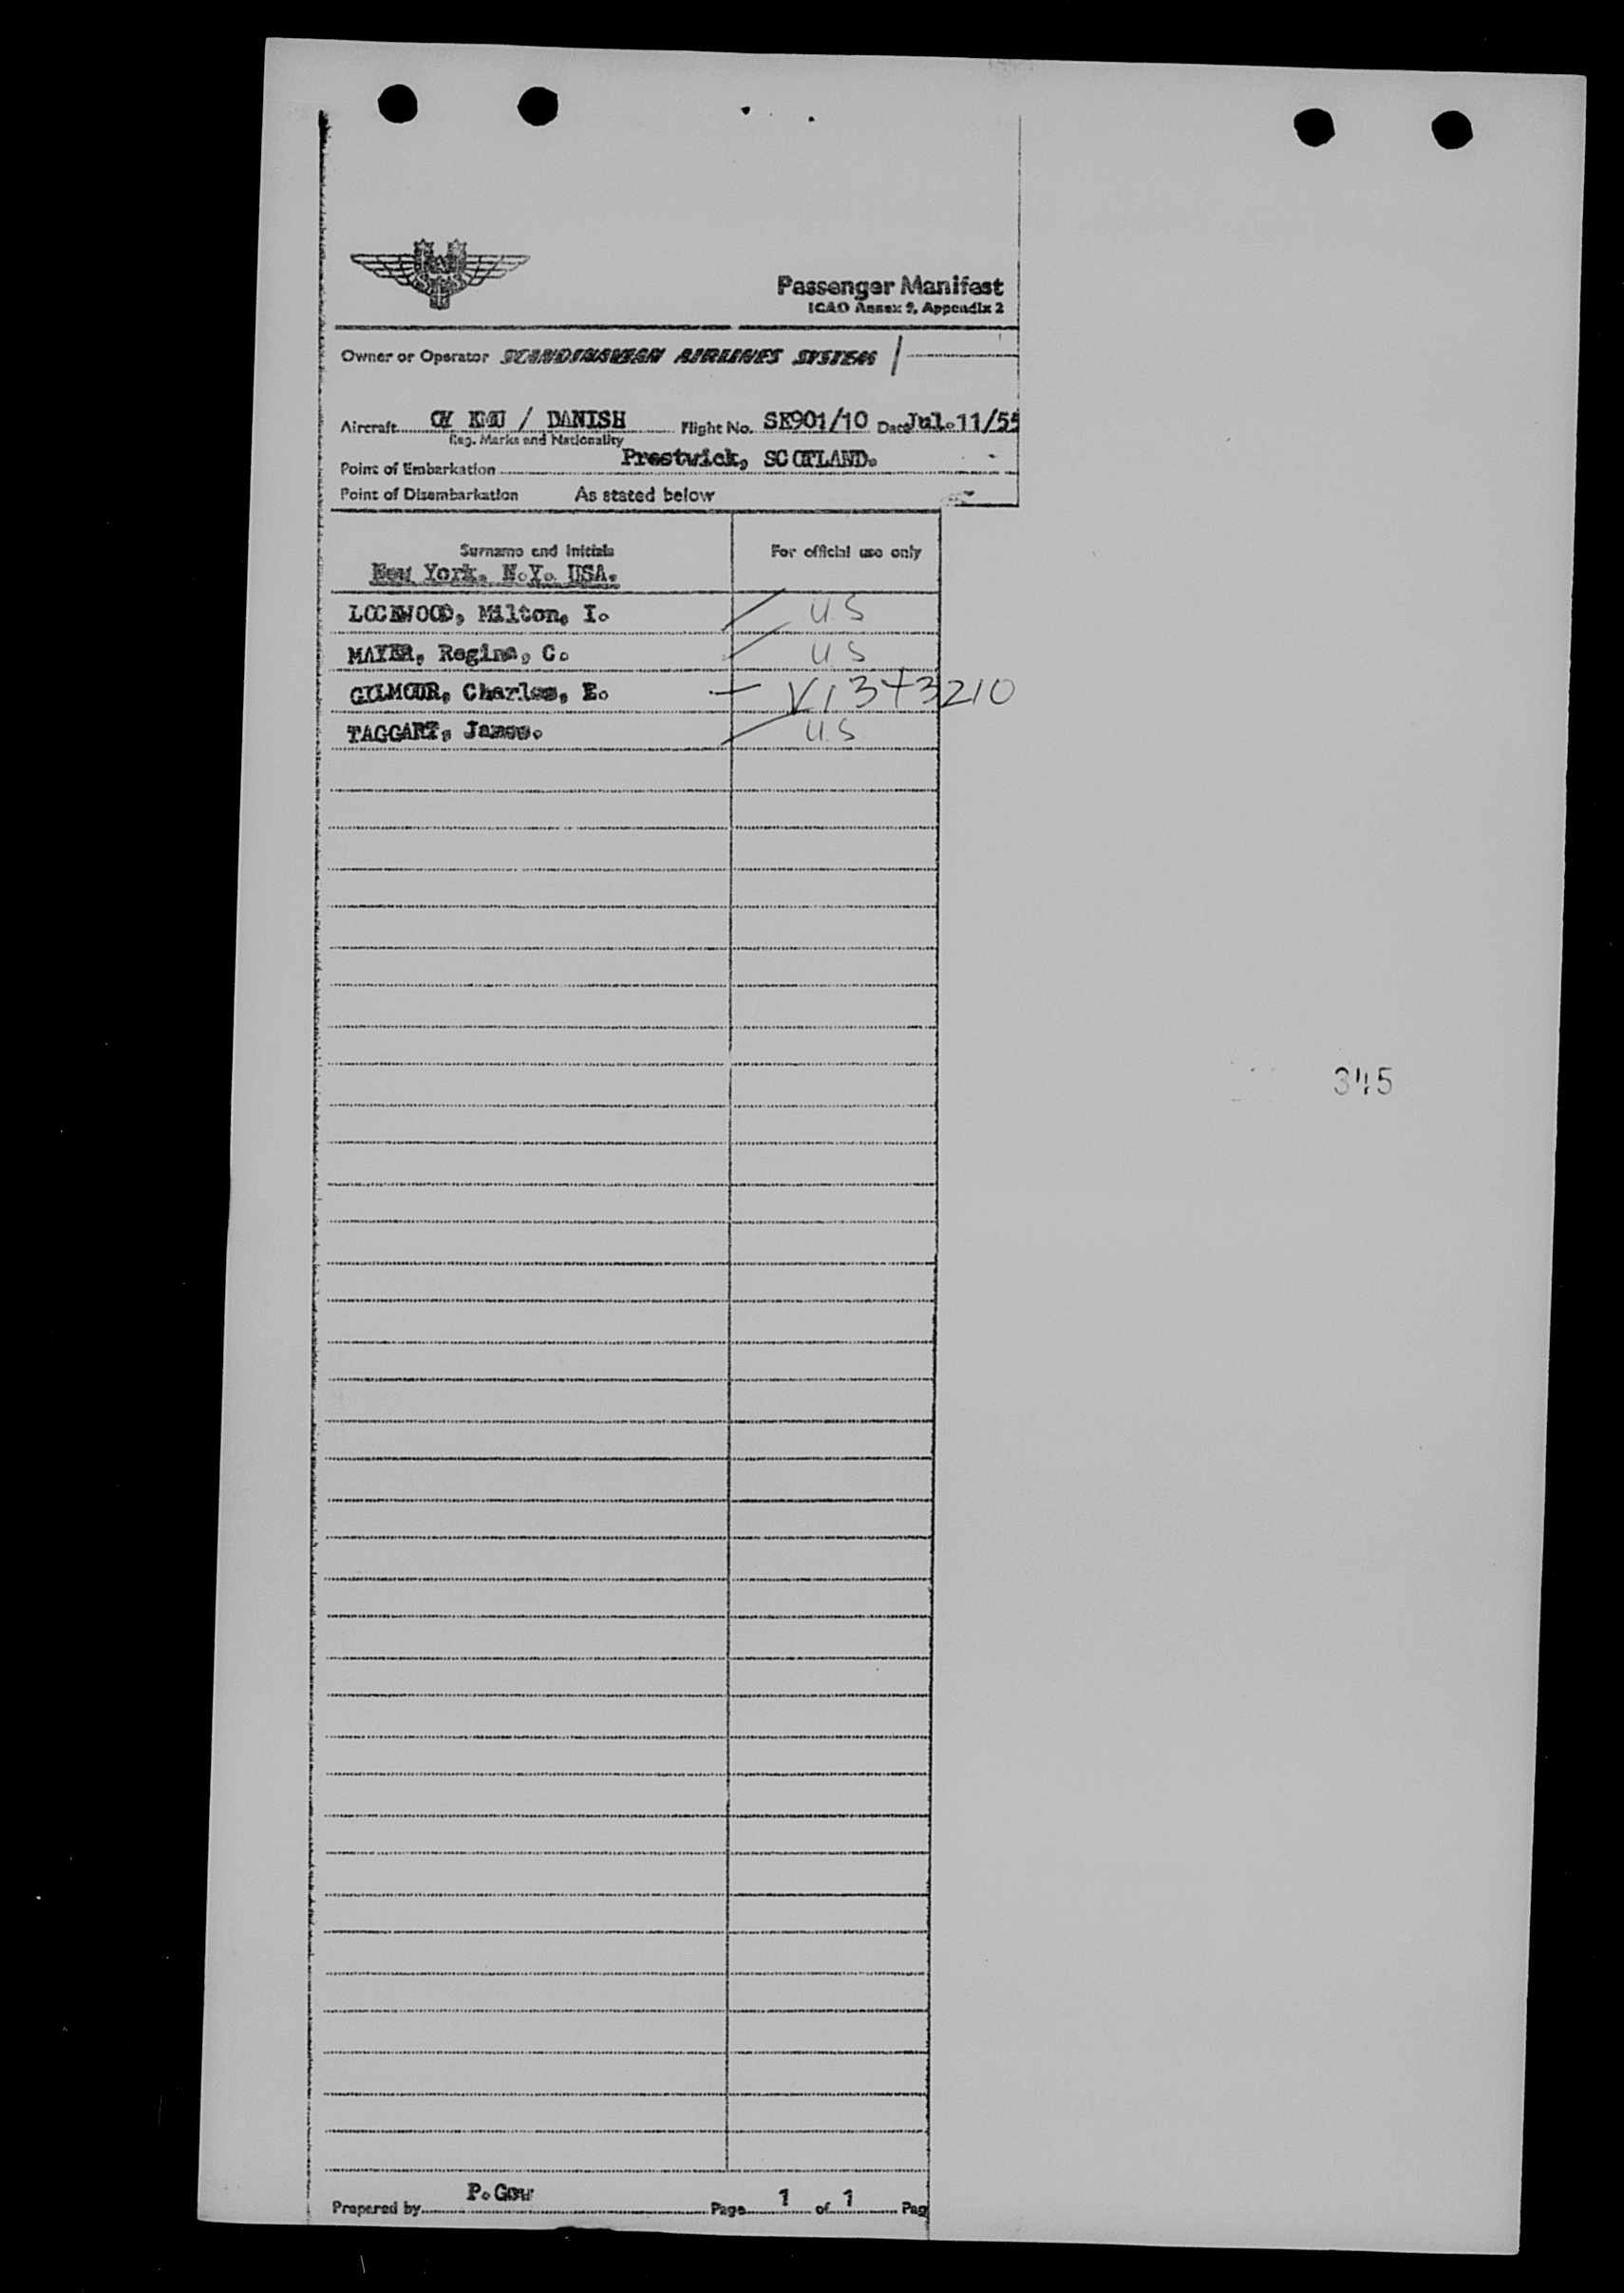 Passenger Manifest
ICAO Annex 9, Appendix 2
Owner or Operator SCANDINAVIAN AIRLINES SYSTEM
Aircraft OY KMU / DANISH Flight No. SK901/10 Date Jul.11/55
Reg. Marks and Nationality
Point of Embarkation Prestwick, SCOTLAND.
Point of Disembarkation As stated below
Surname and Initials For official use only
New York. N.Y. USA.
LOCKWOOD, Milton, I. U.S
MAYER, Regina, C. U.S
GILMOUR, Charles, E. V1373210
TAGGART, James. U.S
345
Prepared by P. Gow Page 1 of 1 Pag